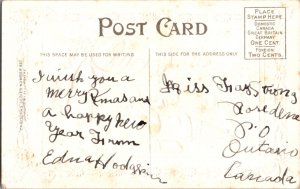 POST CARD
PLACE
STAMP HERE
DOMESTIC
CANADA
GREAT BRITAIN
GERMANY
ONE CENT
FOREIGN
TWO CENTS
THIS SPACE MAY BE USED FOR WRITING
THIS SIDE FOR THE ADDRESS ONLY
I wish you a
merry Xmas and
a happy new
Year From
Edna
Miss Strong
Rosedene
P.O
Ontario
Canada